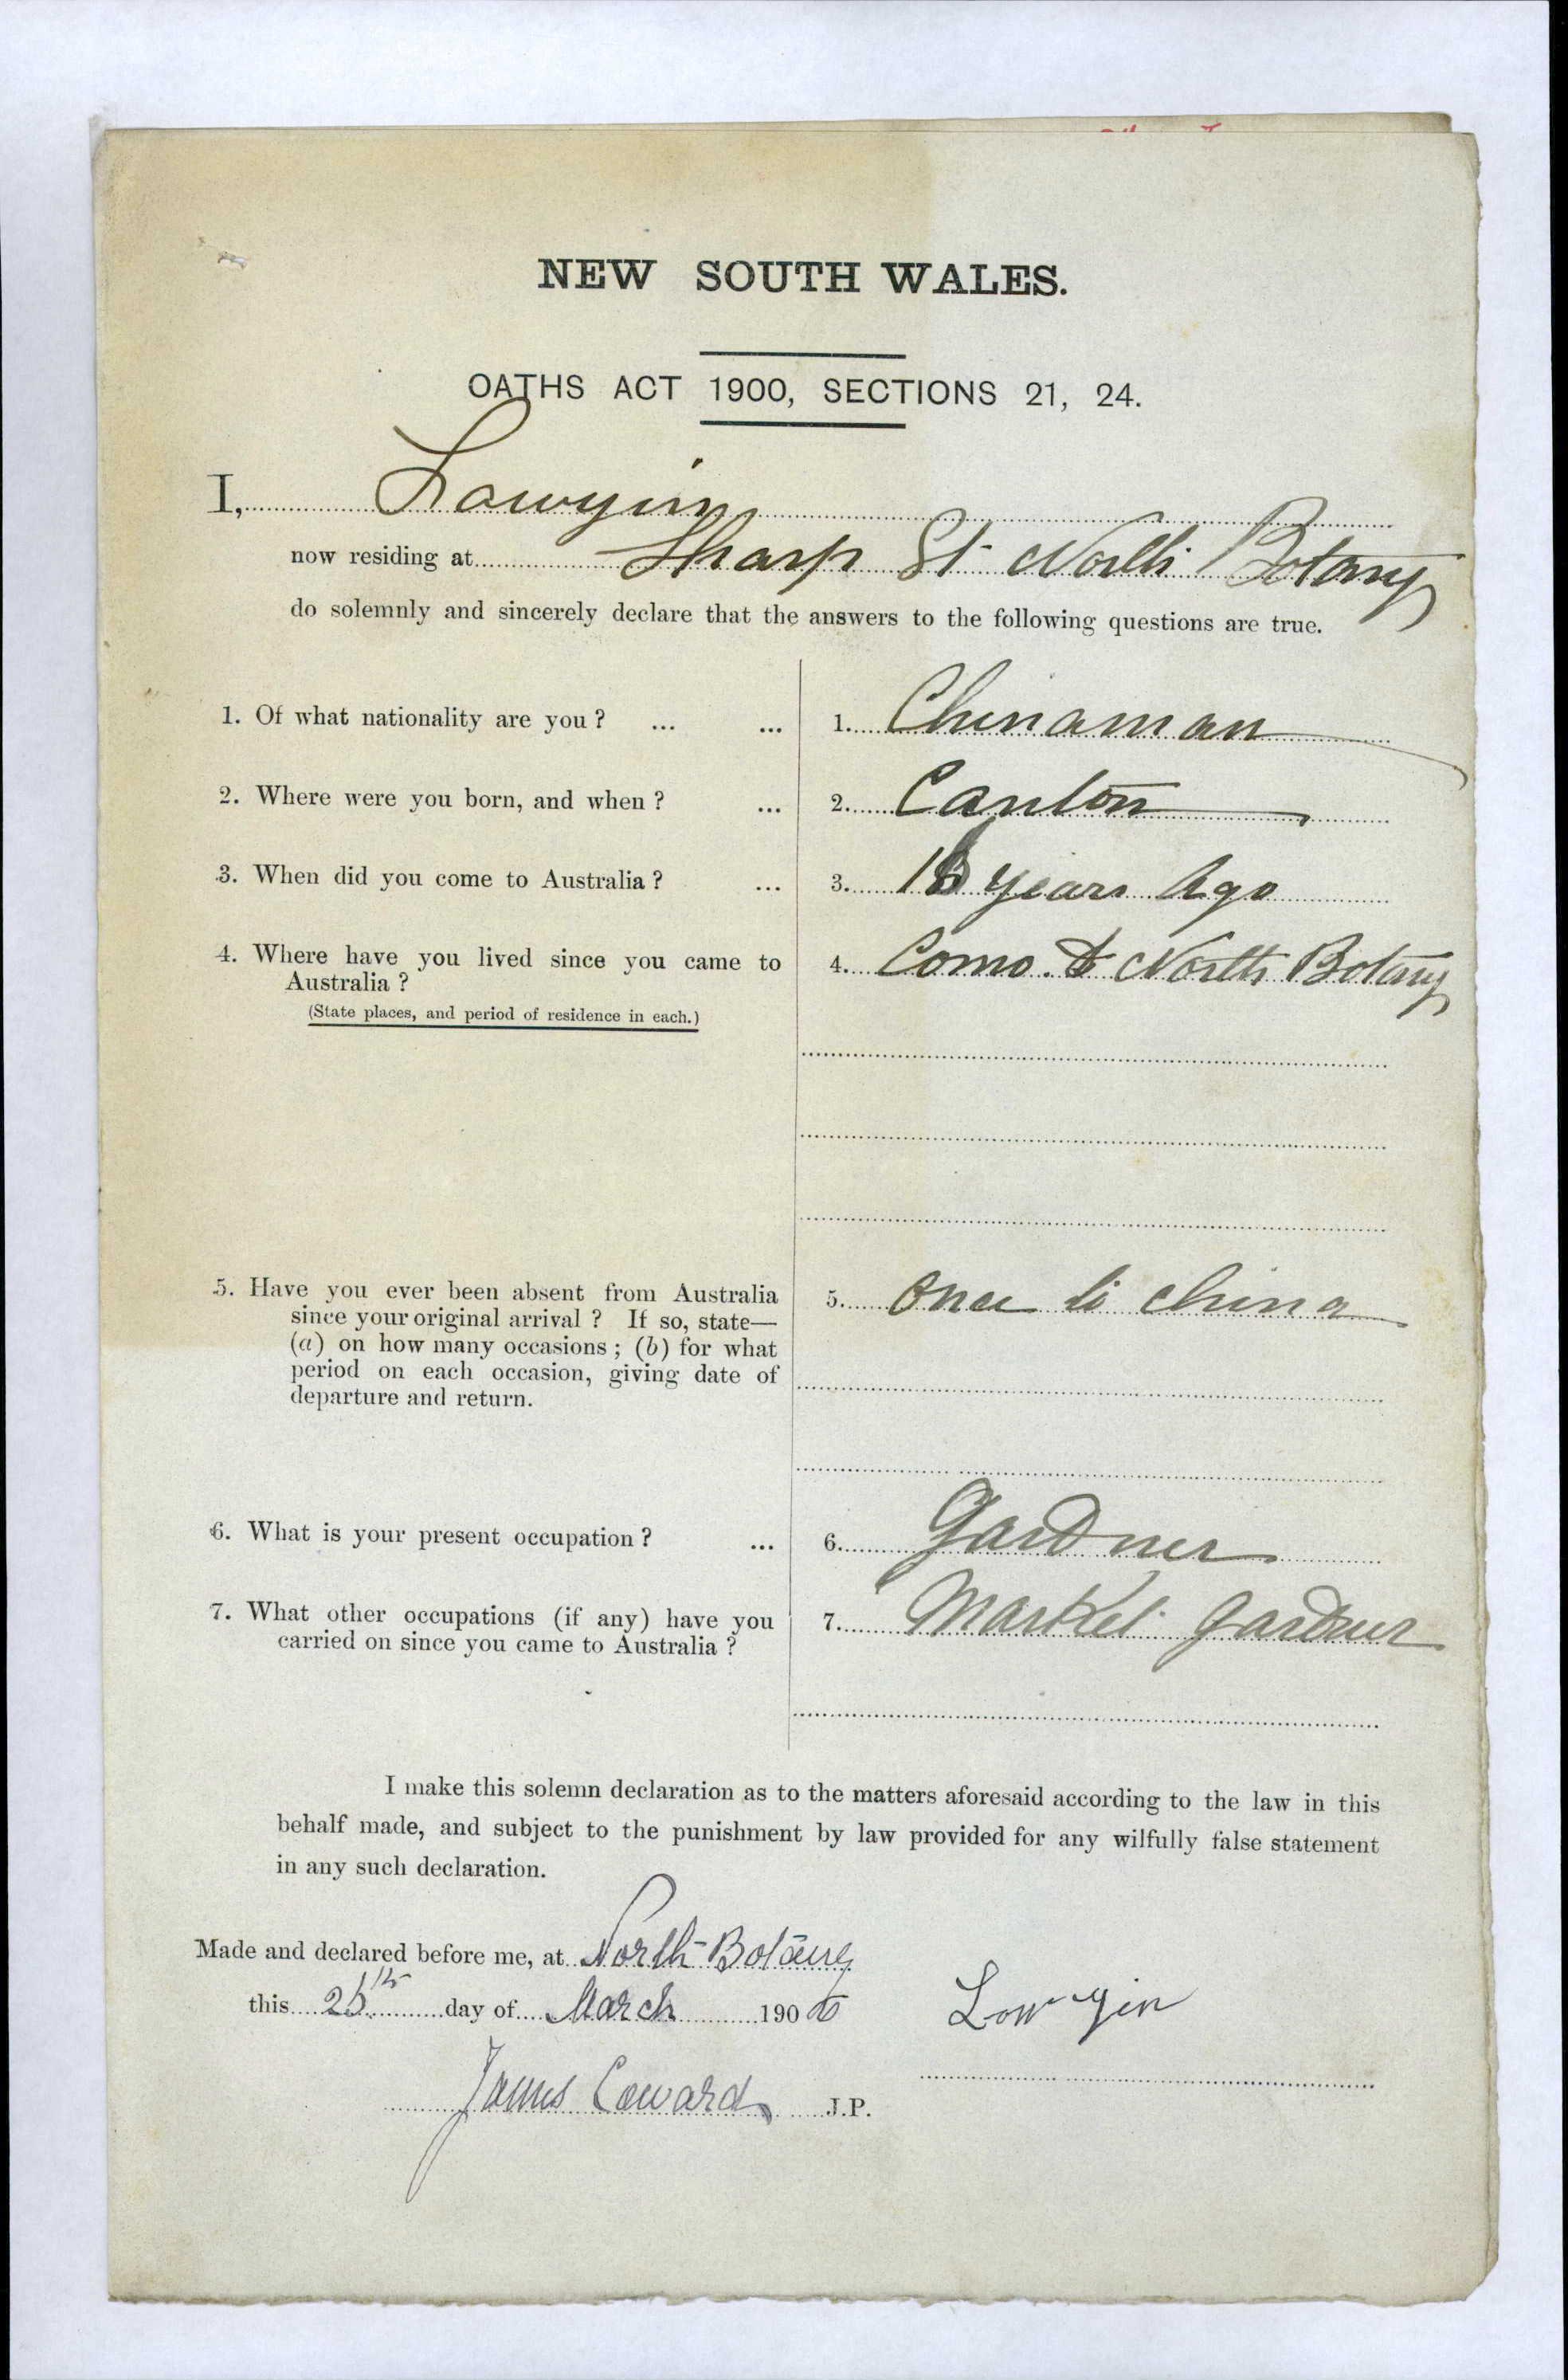 NEW SOUTH WALES.
OATHS ACT 1900, SECTIONS 21, 24.
I, Lowyin
now residing at Sharp St North Botany
do solemnly and sincerely declare that the answers to the following questions are true.
1. Of what nationality are you ? ... ... 1. Chinaman
2. Where were you born, and when ? ... 2. Canton
3. When did you come to Australia ? ... 3. years Ago
4. Where have you lived since you came to 4. Como & North Botany
Australia ?
(State places, and period of residence in each.)
5. Have you ever been absent from Australia 5. Once to china
since your original arrival ? If so, state—
(a) on how many occasions ; (b) for what
period on each occasion, giving date of
departure and return.
6. What is your present occupation ? ... 6. Gardner
7. What other occupations (if any) have you 7. Market Gardner
carried on since you came to Australia ?
I make this solemn declaration as to the matters aforesaid according to the law in this
behalf made, and subject to the punishment by law provided for any wilfully false statement
in any such declaration.
Made and declared before me, at North Botany
this day of March 190
Low Yin
James Coward J.P.